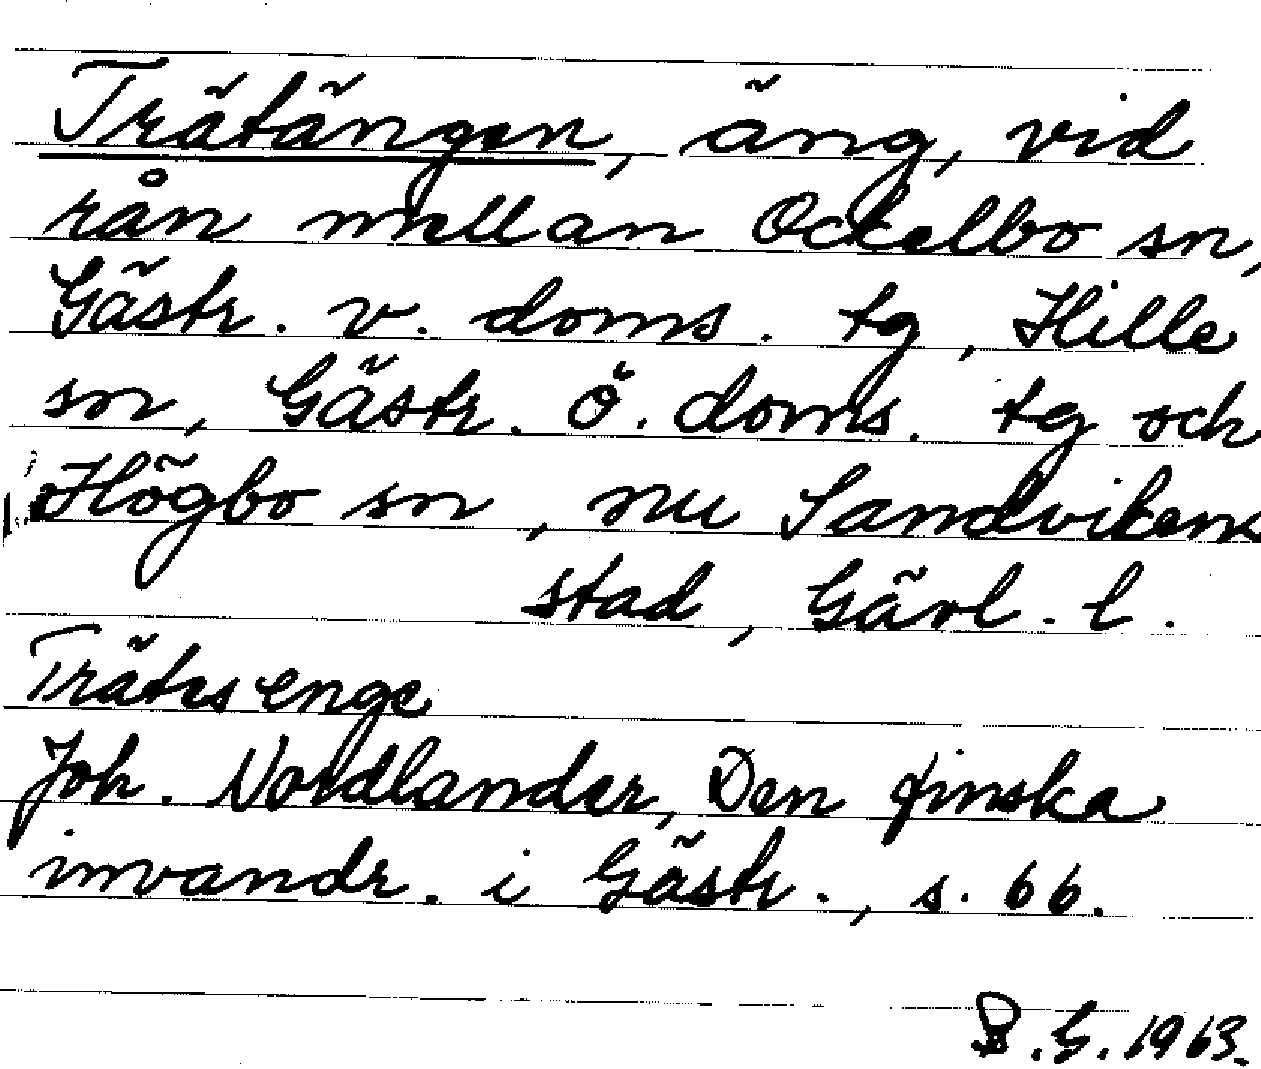 Trätängen, äng, vid
rån mellan Ockelbo sn,
Gästr. v. doms. tg, Hille
sn, Gästr. ö. doms. tg och
Högbo sn, nu Sandvikens
stad, Gävl. l.
Trätesenge
Joh. Nordlander, Den finska
invandr. i Gästr., s. 66.
B.G. 1963.